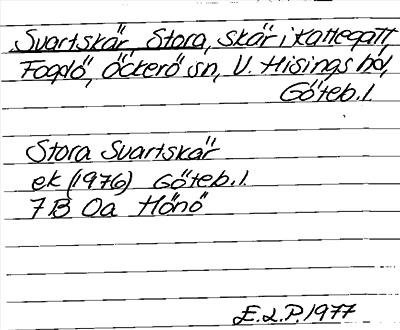 Svartskär, Stora, skär i Kattegatt,
Fogdö, Öckerö sn, V. Hisings hd,
Göteb.l.
Stora Svartskär
ek (1976) Göteb.l.
7 B 0a Hönö
E.L.P. 1977